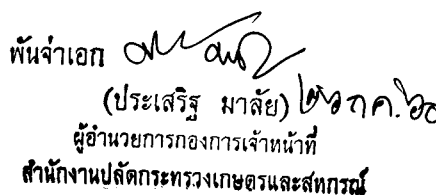 พันจ่าเอก
(ประเสริฐ มาลัย)
ผู้อำนวยการกองการเจ้าหน้าที่
สำนักงานปลัดกระทรวงเกษตรและสหกรณ์